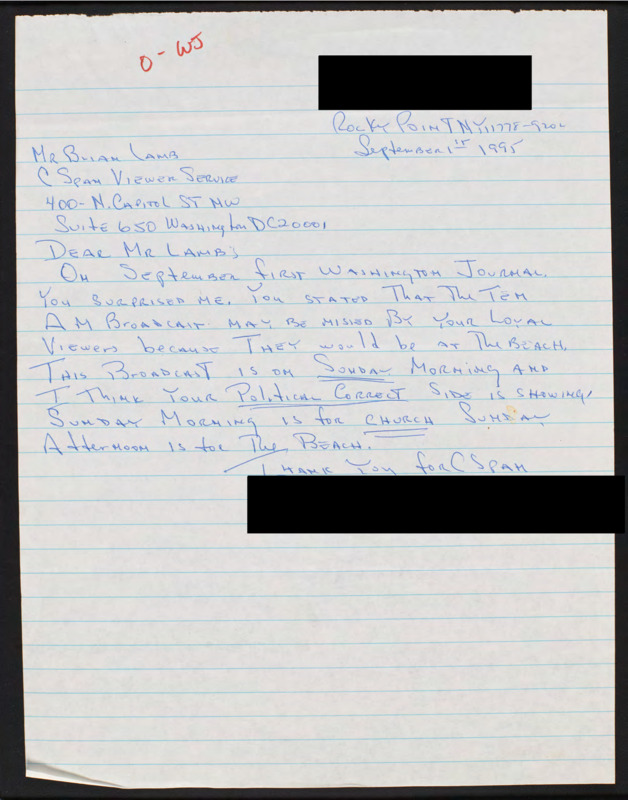 O - WJ
Rocky Point NY 11778-9202
September 1st 1995
Mr Brian Lamb
C Span Viewer Service
400 - N. Capitol ST NW
Suite 650 Washington DC 20001
Dear Mr Lamb;
On September first Washington Journal.
You surprised me. You stated that the Ten
AM Broadcast may be missed by your Loyal
Viewers because they would be at the Beach.
This Broadcast is on Sunday Morning and
I think your Political Correct side is showing!
Sunday Morning is for church Sunday
Afternoon is for the Beach.
Thank you for C Span